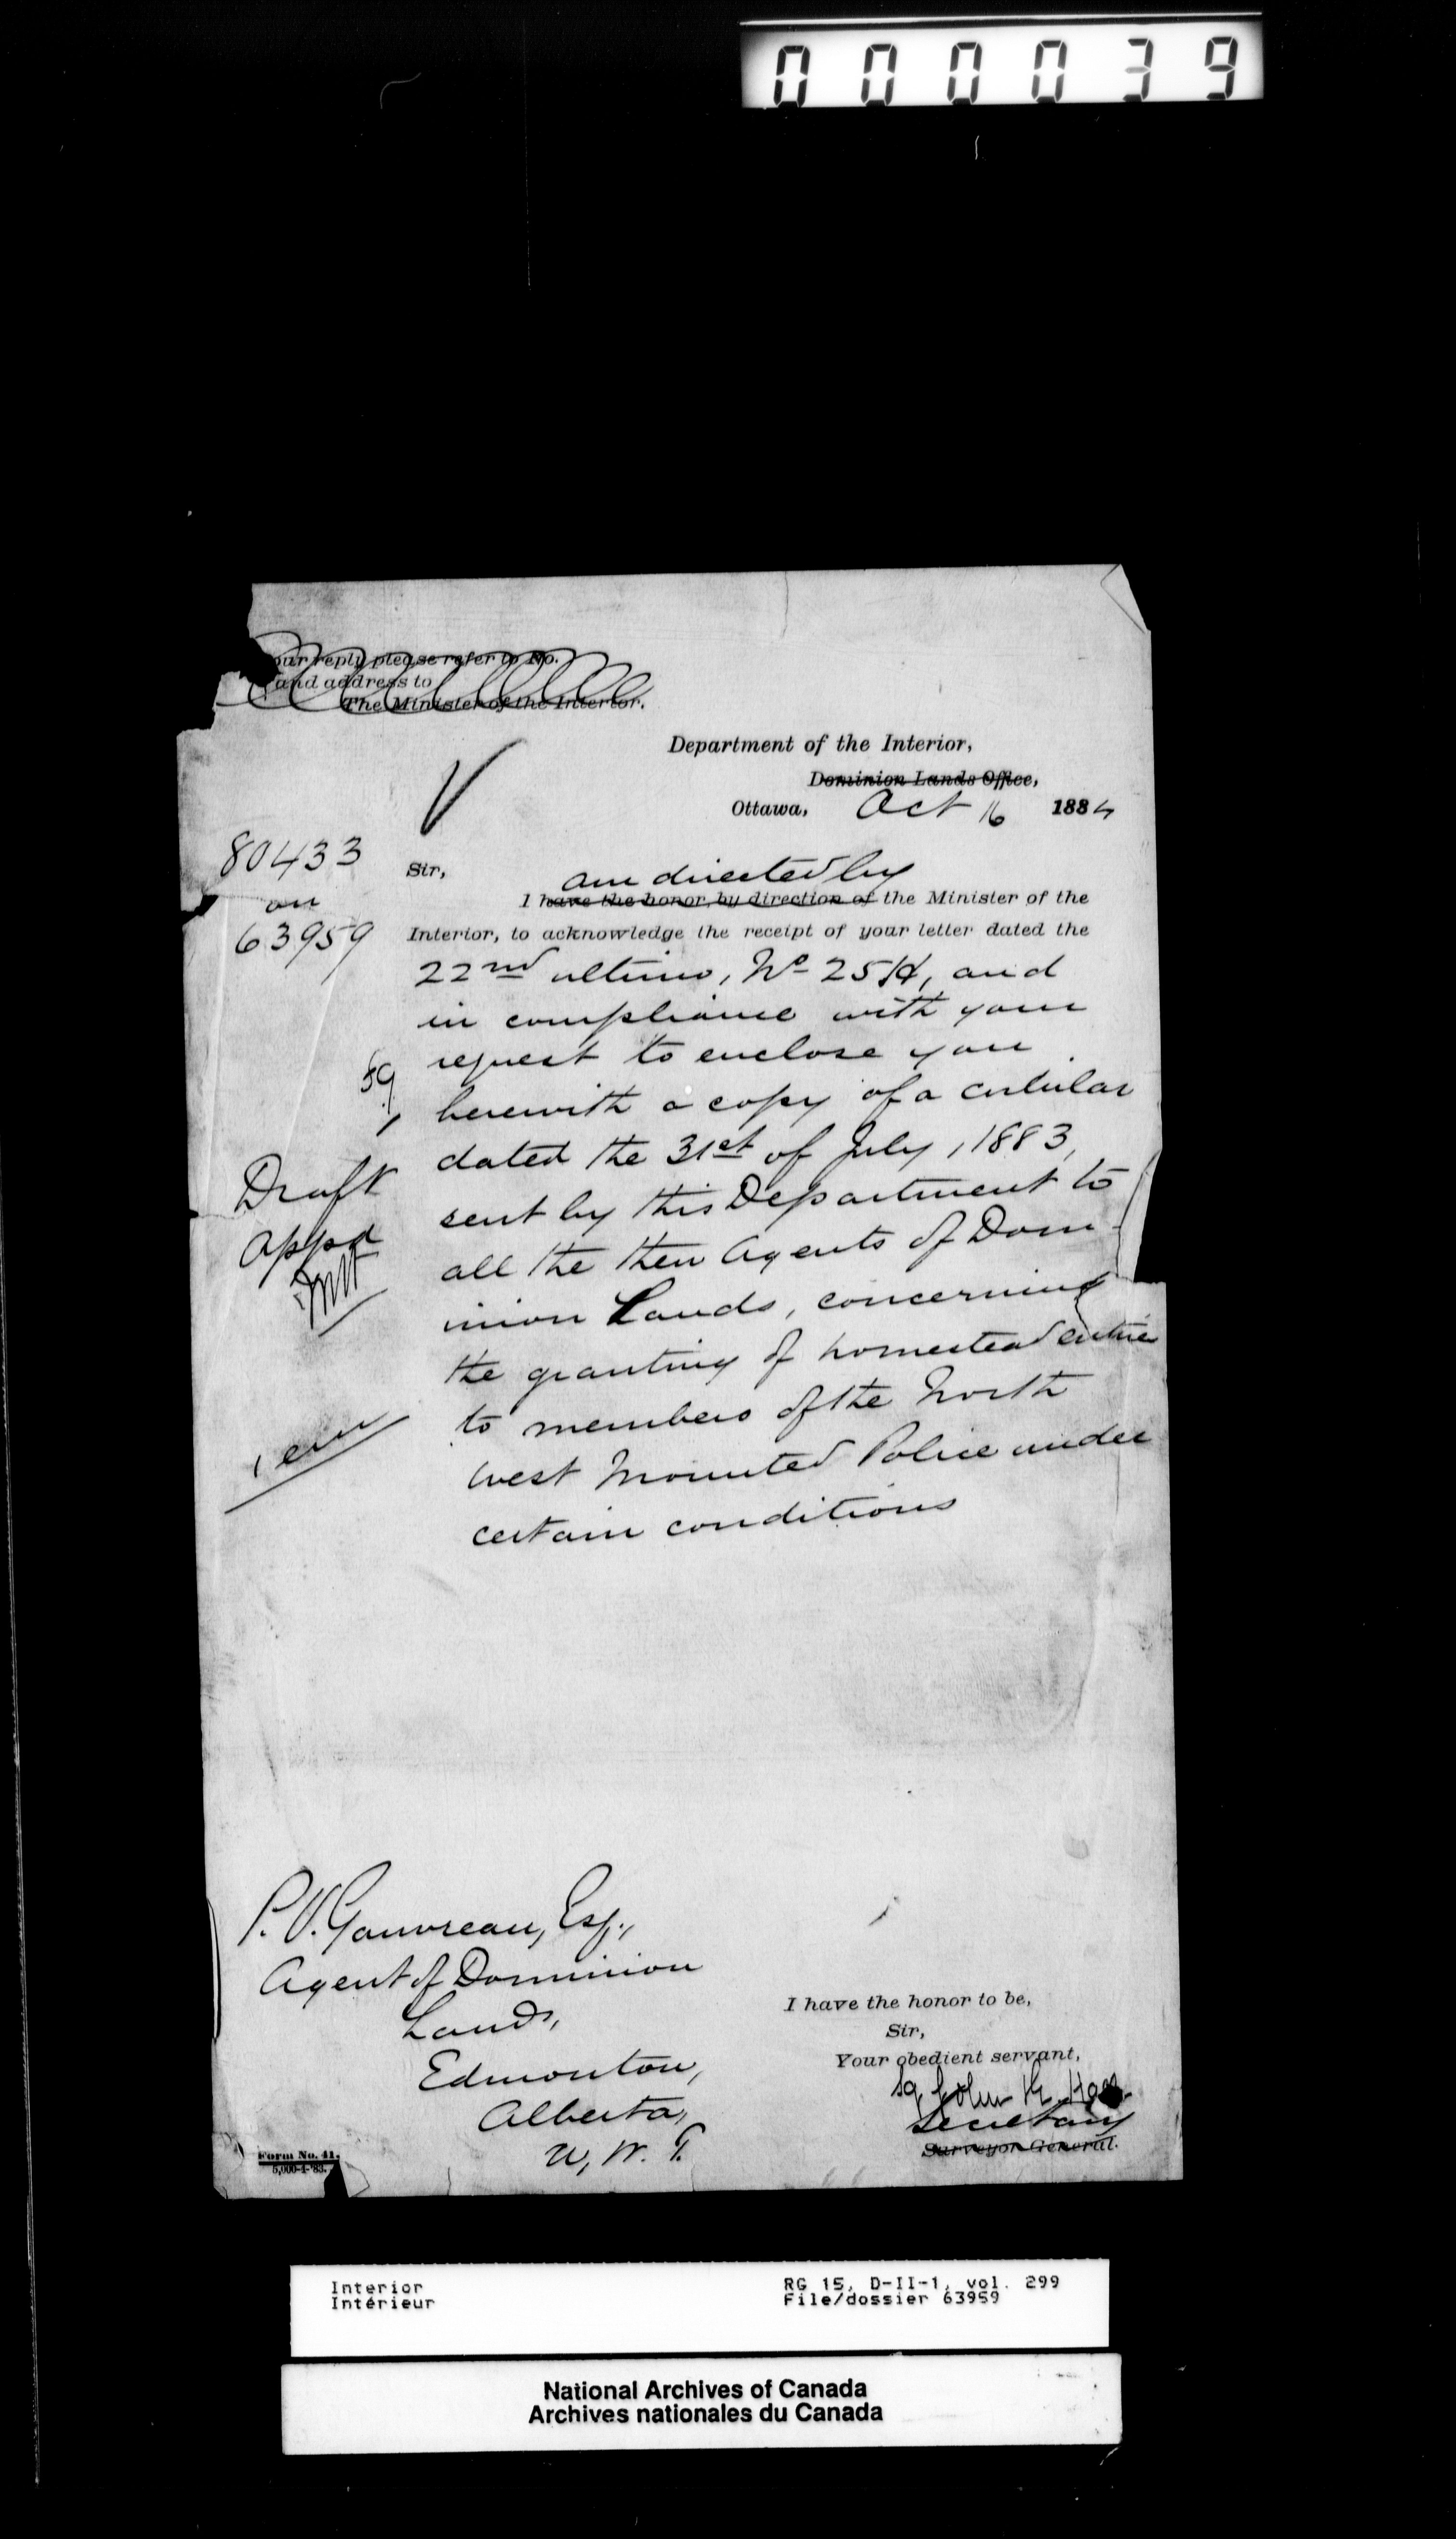 000039
our reply please refer to No.
and address to
The Minister of the Interior.
Department of the Interior,
Dominion Lands Office,
Ottawa, Oct 16 1884
80433
on
63959
Sir,
am directed by
I have the honor, by direction of the Minister of the
Interior, to acknowledge the receipt of your letter dated the
22nd ultimo, No 25H, and
in compliance with your
request to enclose you
herewith a copy of a circular
dated the 31st of July, 1883,
sent by this Department to
all the then Agents of Dom-
inion Lands, concerning
the granting of homestead entries
to members of the North
West Mounted Police under
certain conditions
Draft
appd
P. V. Gauvreau, Esq.,
Agent of Dominion
Lands,
Edmonton,
Alberta,
N. W. T.
I have the honor to be,
Sir,
Your obedient servant,
sg John R. Hall
Secretary
Surveyor General.
Form No. 41.
5,000-4-'83.
Interior
Intérieur
RG 15, D-II-1, vol. 299
File/dossier 63959
National Archives of Canada
Archives nationales du Canada